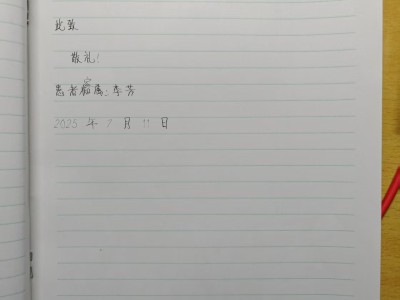 此致
敬礼!
患者家属:李芳
2025年7月11日